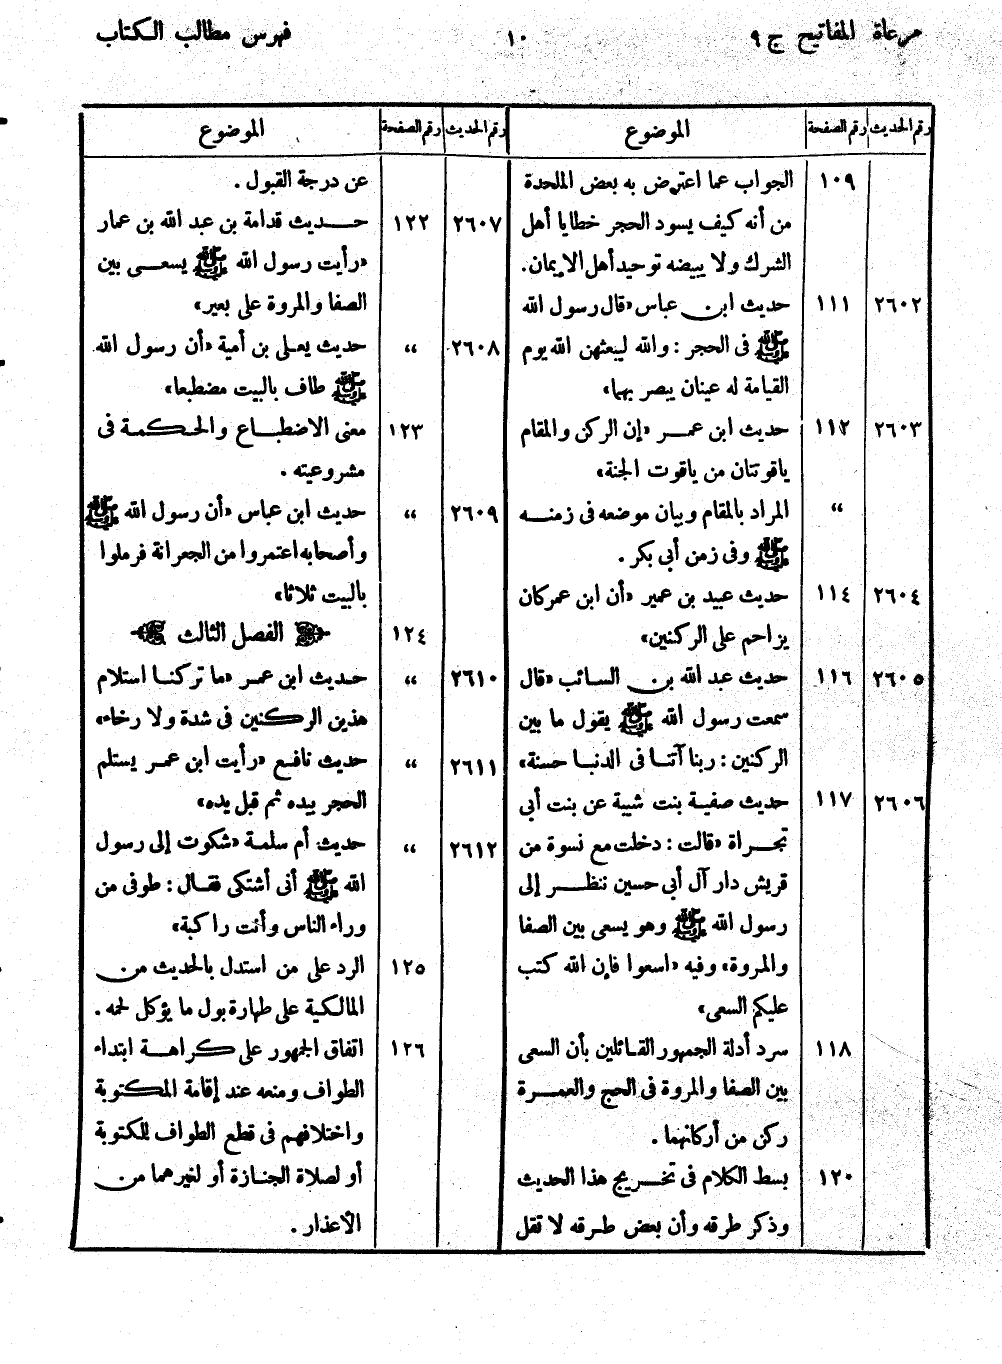 مرعاة المفاتيح ج ٩
١٠
فهرس مطالب الكتاب
رقم الحديث رقم الصفحة الموضوع
١٠٩ الجواب عما اعترض به بعض الملحدة
من أنه كيف يسود الحجر خطايا أهل
الشرك ولا يبيضه توحيد أهل الإيمان.
٢٦٠٢ ١١١ حديث ابن عباس «قال رسول الله
ﷺ فى الحجر: والله ليبعثهن الله يوم
القيامة له عينان يبصر بهما»
٢٦٠٣ ١١٢ حديث ابن عمر «إن الركن والمقام
ياقوتتان من ياقوت الجنة»
“ المراد بالمقام وبيان موضعه فى زمنه
ﷺ وفى زمن أبى بكر.
٢٦٠٤ ١١٤ حديث عبيد بن عمير «أن ابن عمر كان
يزاحم على الركنين»
٢٦٠٥ ١١٦ حديث عبد الله بن السائب «قال
سمعت رسول الله ﷺ يقول ما بين
الركنين: ربنا آتنا فى الدنيا حسنة»
٢٦٠٦ ١١٧ حديث صفية بنت شيبة عن بنت أبى
تجراة «قالت: دخلت مع نسوة من
قريش دار آل أبى حسين ننظر إلى
رسول الله ﷺ وهو يسعى بين الصفا
والمروة» وفيه «اسعوا فإن الله كتب
عليكم السعى»
١١٨ سرد أدلة الجمهور القائلين بأن السعى
بين الصفا والمروة فى الحج والعمرة
ركن من أركانهما.
١٢٠ بسط الكلام فى تخريج هذا الحديث
وذكر طرقه وأن بعض طرقه لا تقل
رقم الحديث رقم الصفحة الموضوع
عن درجة القبول.
٢٦٠٧ ١٢٢ حديث قدامة بن عبد الله بن عمار
«رأيت رسول الله ﷺ يسعى بين
الصفا والمروة على بعير»
٢٦٠٨ “ حديث يعلى بن أمية «أن رسول الله
ﷺ طاف بالبيت مضطبعا»
١٢٣ معنى الاضطباع والحكمة فى
مشروعيته.
٢٦٠٩ “ حديث ابن عباس «أن رسول الله ﷺ
وأصحابه اعتمروا من الجعرانة فرملوا
بالبيت ثلاثا»
١٢٤ الفصل الثالث
٢٦١٠ “ حديث ابن عمر «ما تركنا استلام
هذين الركنين فى شدة ولا رخاء»
٢٦١١ “ حديث نافع «رأيت ابن عمر يستلم
الحجر بيده ثم قبل يده»
٢٦١٢ “ حديث أم سلمة «شكوت إلى رسول
الله ﷺ أنى أشتكى فقال: طوفى من
وراء الناس وأنت راكبة»
١٢٥ الرد على من استدل بالحديث من
المالكية على طهارة بول ما يؤكل لحمه.
١٢٦ اتفاق الجمهور على كراهة ابتداء
الطواف ومنعه عند إقامة المكتوبة
واختلافهم فى قطع الطواف للكتوبة
أو لصلاة الجنازة أو لغيرهما من
الأعذار.